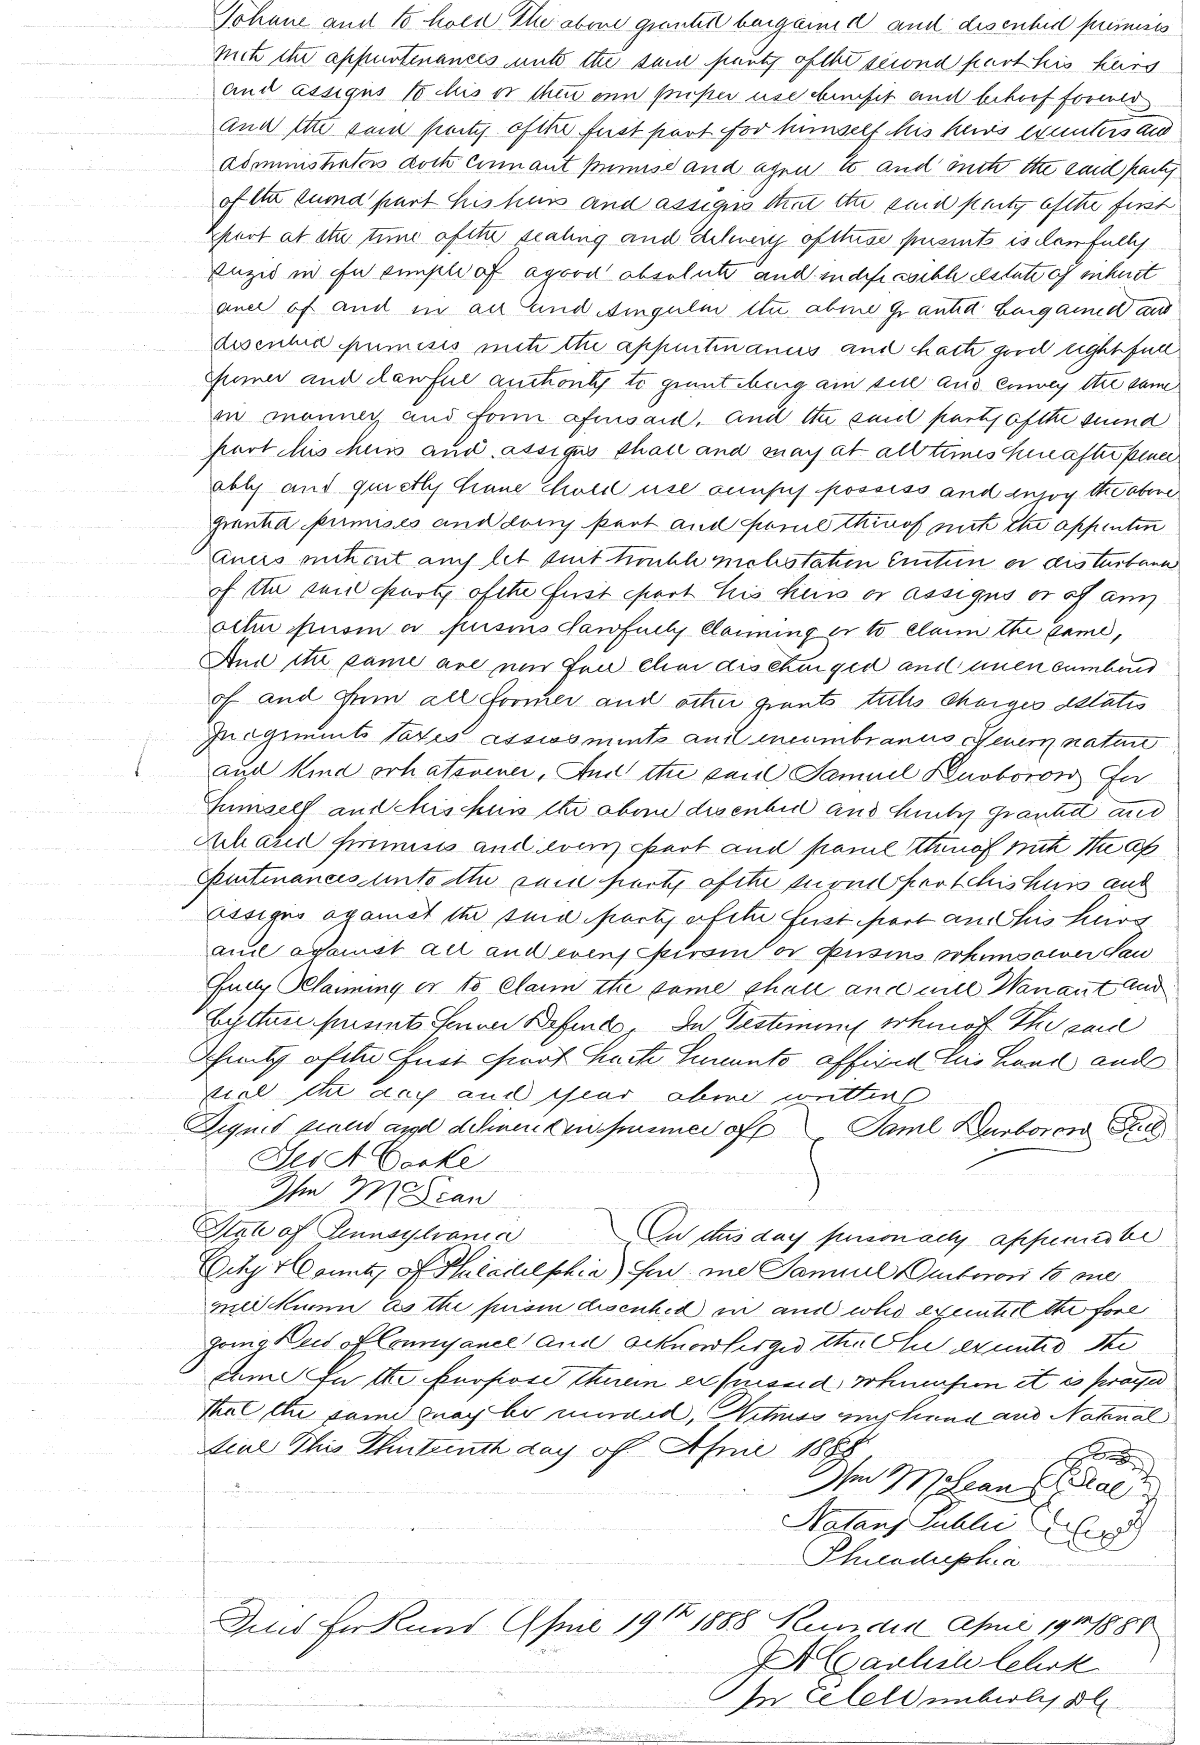 To have and to hold The above granted bargained and described premises
with the appurtenances unto the said party of the second part his heirs
and assigns to his or their own proper use benefit and behoof forever
And the said party of the first part for himself his heirs executors and
administrators doth covenant promise and agree to and with the said party
of the second part his heirs and assigns that the said party of the first
part at the time of the sealing and delivery of these presents is lawfully
seized in fee simple of a good absolute and indefeasible estate of inherit
ance of and in all and singular the above granted bargained and
described premises with the appurtenances and hath good right full
power and lawful authority to grant bargain sell and convey the same
in manner and form aforesaid. And the said party of the second
part his heirs and assigns shall and may at all times hereafter peace
ably and quietly have hold use occupy possess and enjoy the above
granted premises and every part and parcel thereof with the appurten
ances without any let suit trouble molestation Eviction or disturbance
of the said party of the first part his heirs or assigns or of any
other person or persons lawfully claiming or to claim the same,
And the same are now free clear discharged and unencumbered
of and from all former and other grants titles charges estates
Judgments taxes assessments and encumbrances of every nature
and kind whatsoever, And the said Samuel Durborow for
himself and his heirs the above described and hereby granted and
released premises and every part and parcel thereof with the ap
purtenances unto the said party of the second part his heirs and
assigns against the said party of the first part and his heirs
and against all and every person or persons whomsoever law
fully Claiming or to claim the same shall and will Warrant and
by these presents forever Defend. In Testimony whereof The said
party of the first part hath hereunto affixed his hand and
seal the day and year above written
Signed sealed and delivered in presence of Saml Durborow Seal
Geo A Cooke
Wm McLean
State of Pennsylvania On this day personally appeared be
City & County of Philadelphia) fore me Samuel Durborow to me
well known as the person described in and who executed the fore
going Deed of Conveyance and acknowledged that he executed the
same for the purpose therein expressed, whereupon it is prayed
that the same may be recorded, Witness my hand and Notarial
seal This Thirteenth day of April 1888
Wm McLean Seal
Notary Public
Philadelphia
Filed for Record April 19th 1888 Recorded April 19th 1888
J A Carlisle Clerk